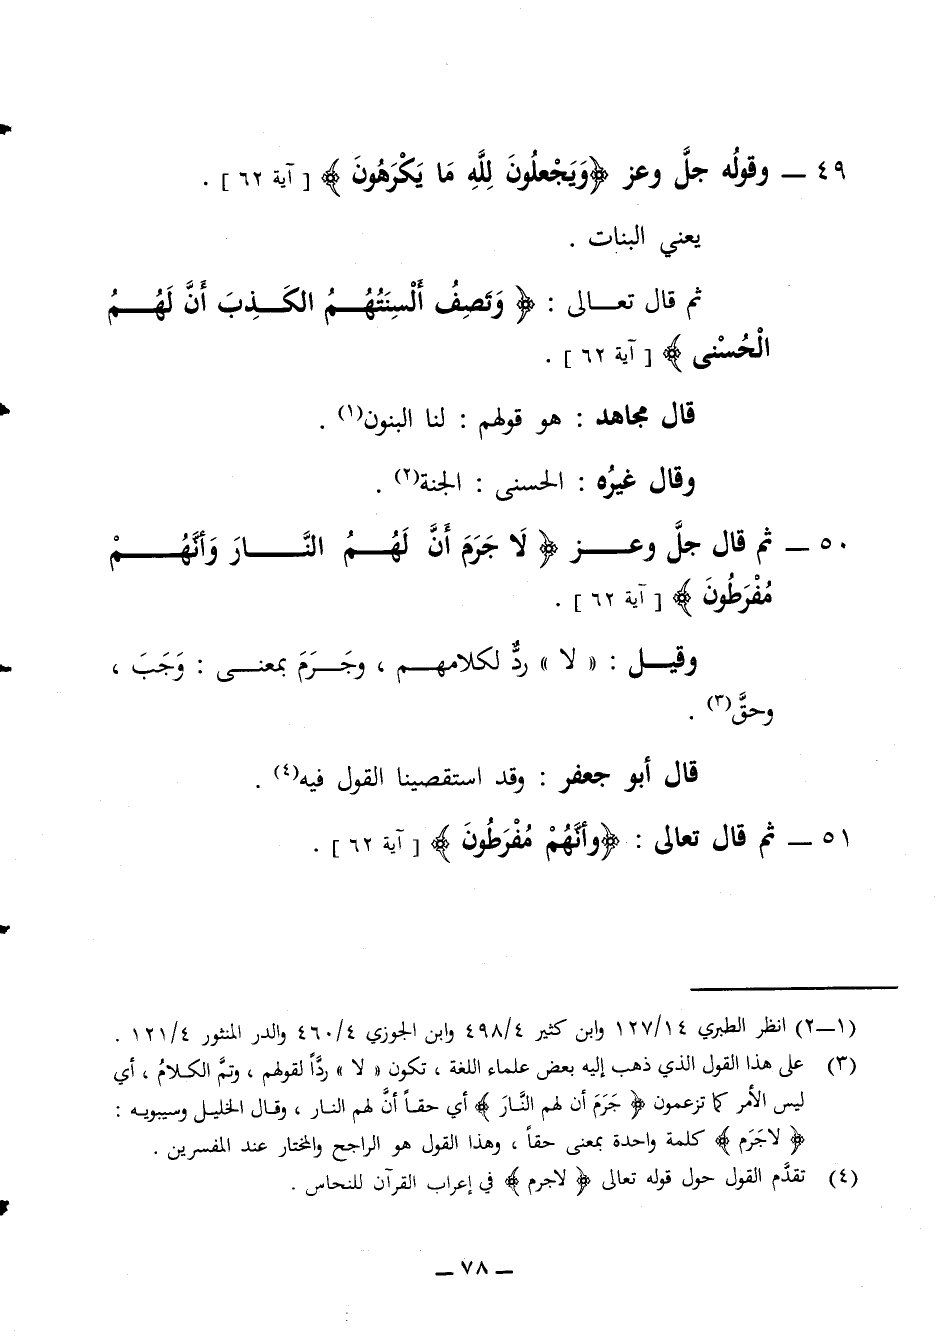 ٤٩ ــ وقولُه جلَّ وعز ﴿وَيَجْعلُونَ لِلَّهِ مَا يَكْرَهُونَ ﴾ [ آية ٦٢ ] .
يعني البنات .
ثم قال تعــالى : ﴿ وَتَصِفُ أَلْسِنَتُهُــمُ الكَــذِبَ أَنَّ لَهُــمُ
الْحُسْنى ﴾ [ آية ٦٢ ] .
قال مجاهد : هو قولهم : لنا البنون(١) .
وقال غيرُه : الحسنى : الجنة(٢) .
٥٠ ــ ثم قال جلَّ وعــز ﴿ لَا جَرَمَ أَنَّ لَهُــمُ النَّــارَ وَأَنَّهُــمْ
مُفْرَطُونَ ﴾ [ آية ٦٢ ] .
وقيــل : « لا » ردٌّ لكلامهــم ، وجَــرَمَ بمعنــى : وَجَبَ ،
وحقَّ(٣) .
قال أبو جعفر : وقد استقصينا القول فيه(٤) .
٥١ ــ ثم قال تعالى : ﴿وأنَّهُمْ مُفْرَطُونَ ﴾ [ آية ٦٢ ] .
(١ــ٢) انظر الطبري ١٢٧/١٤ وابن كثير ٤٩٨/٤ وابن الجوزي ٤٦٠/٤ والدر المنثور ١٢١/٤ .
(٣) على هذا القول الذي ذهب إليه بعض علماء اللغة ، تكون « لا » ردَّاً لقولهم ، وتمَّ الكلامُ ، أي
ليس الأمر كما تزعمون ﴿ جَرَمَ أن لهم النَّارَ ﴾ أي حقـاً أنَّ لهم النـار ، وقـال الخليـل وسيبويـه :
﴿ لاجَرَم ﴾ كلمة واحدة بمعنى حقاً ، وهذا القول هو الراجح والمختار عند المفسرين .
(٤) تقدَّم القول حول قوله تعالى ﴿ لاجرم ﴾ في إعراب القرآن للنحاس .
ــ ٧٨ ــ